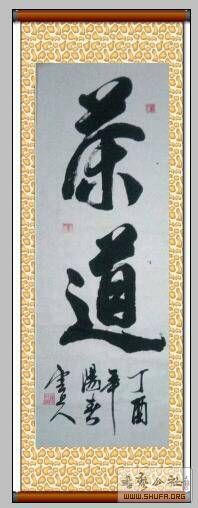 茶道
丁酉
年
陽春
书艺公社
WWW.SHUFA.ORG